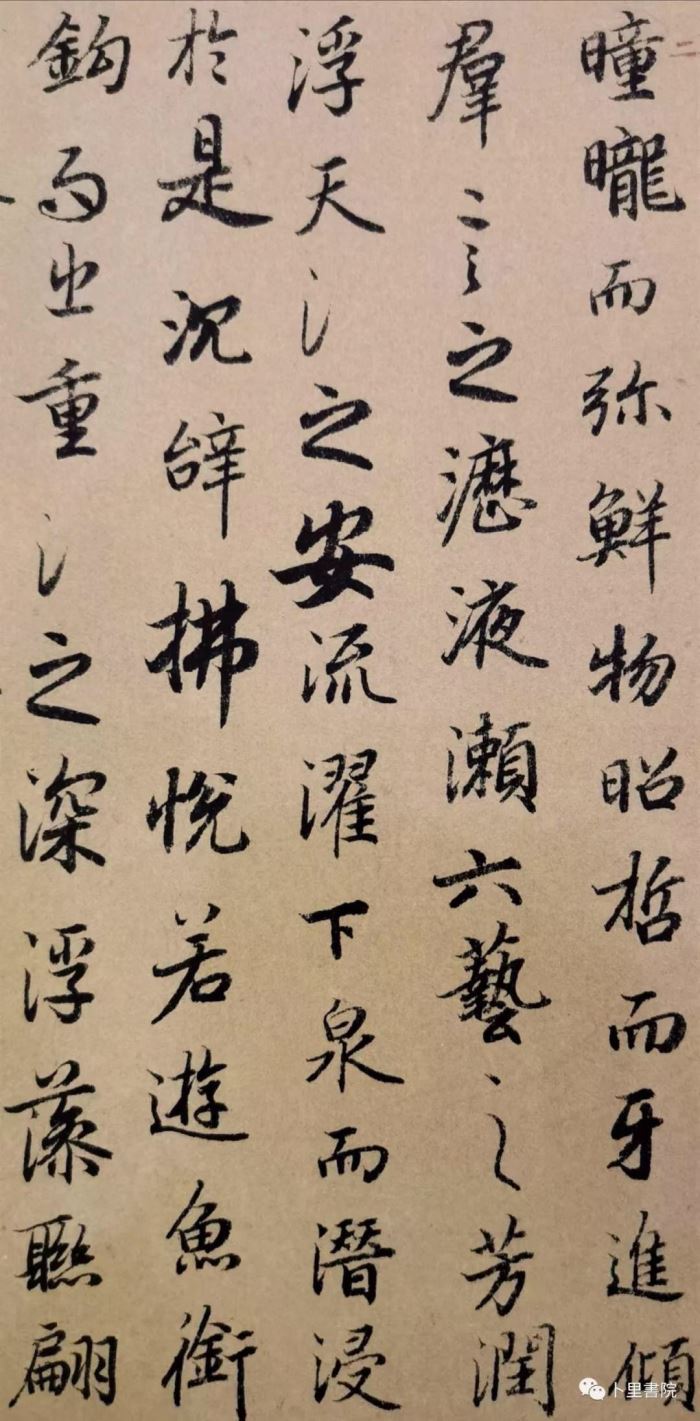 二
曈曨而弥鮮物昭哲而牙進傾
羣言之瀝液漱六藝之芳潤
浮天淵之安流濯下泉而潛浸
於是沉辭拂悅若遊魚銜
鈎而出重淵之深浮藻聯翩
卜里書院